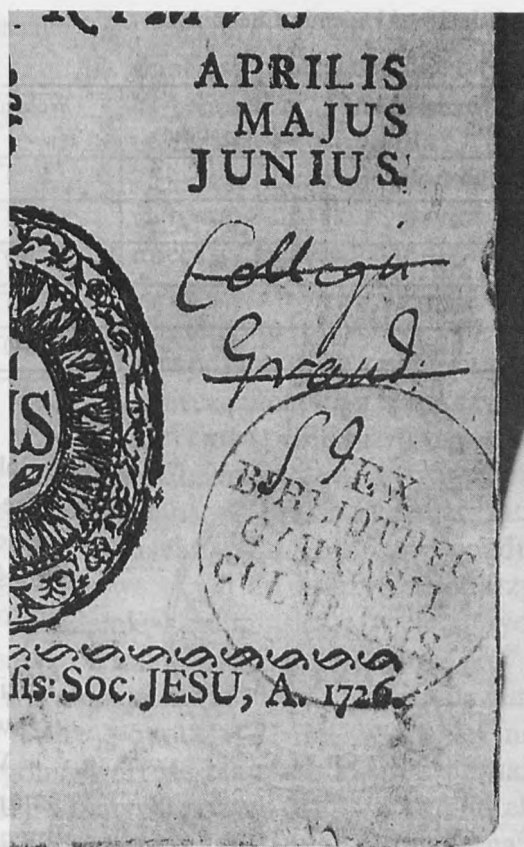 APRILIS
MAJUS
JUNIUS.
Collegii
Graud.
SJ
EX
BIBLIOTHEC
GYMNASII
CULMENSIS.
sis: Soc. JESU, A. 1726.